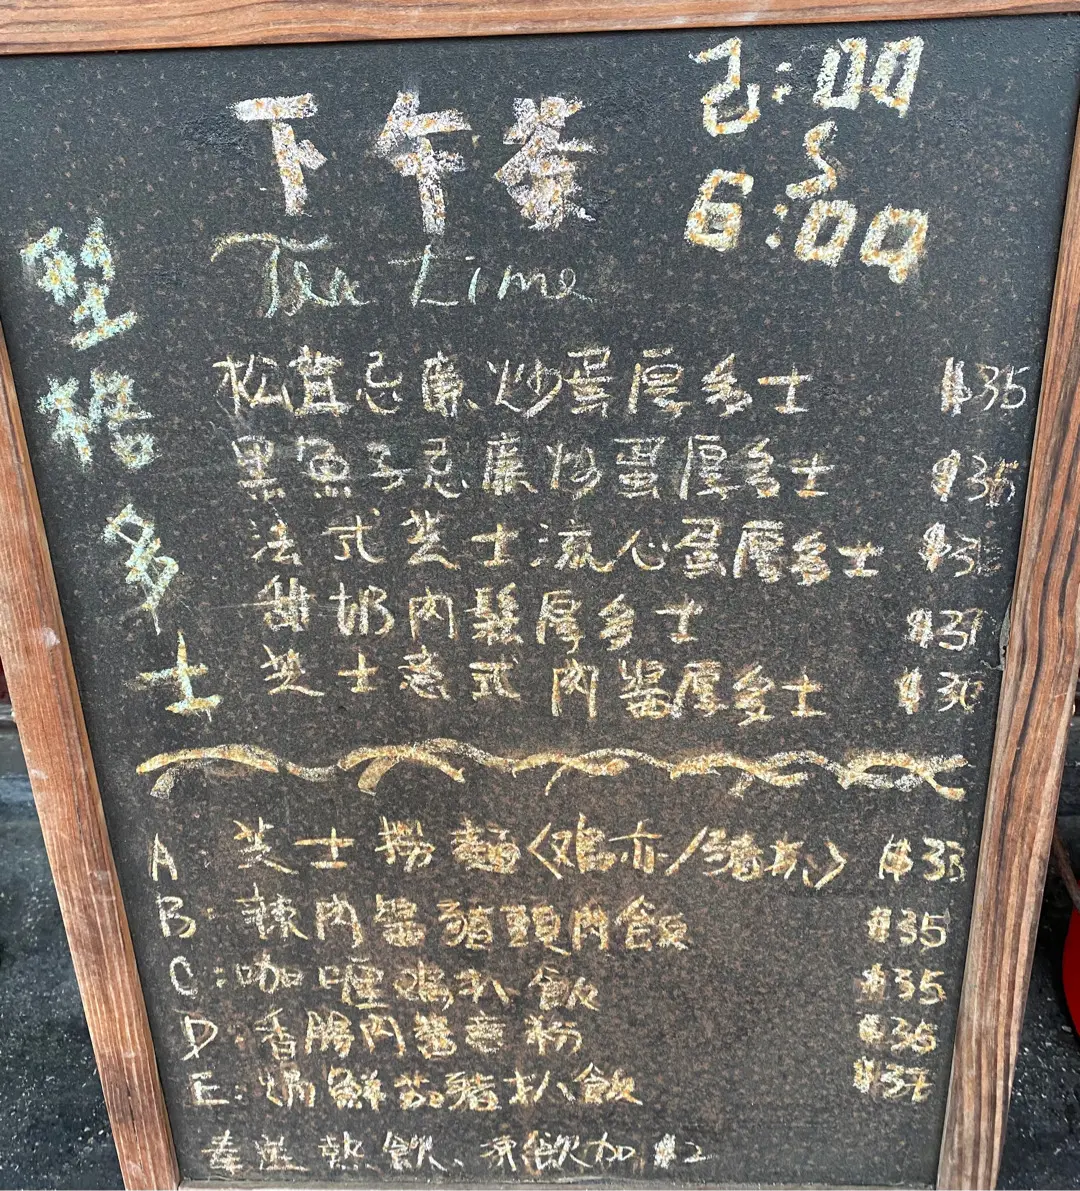 下午茶
2:00
~
6:00
Tea time
型格多士
松茸忌廉炒蛋厚多士 $35
黑魚子忌廉炒蛋厚多士
法式芝士流心蛋厚多士
甜奶肉鬆厚多士
芝士意式肉醬厚多士
A: 芝士撈麵<鷄扒/豬扒> $33
B: 辣肉醬豬頸肉飯 $35
C: 咖喱鷄扒飯 $35
D: 香腸肉醬意粉 $35
E: 焗鮮茄豬扒飯 $37
奉送熱飲、凍飲加$2